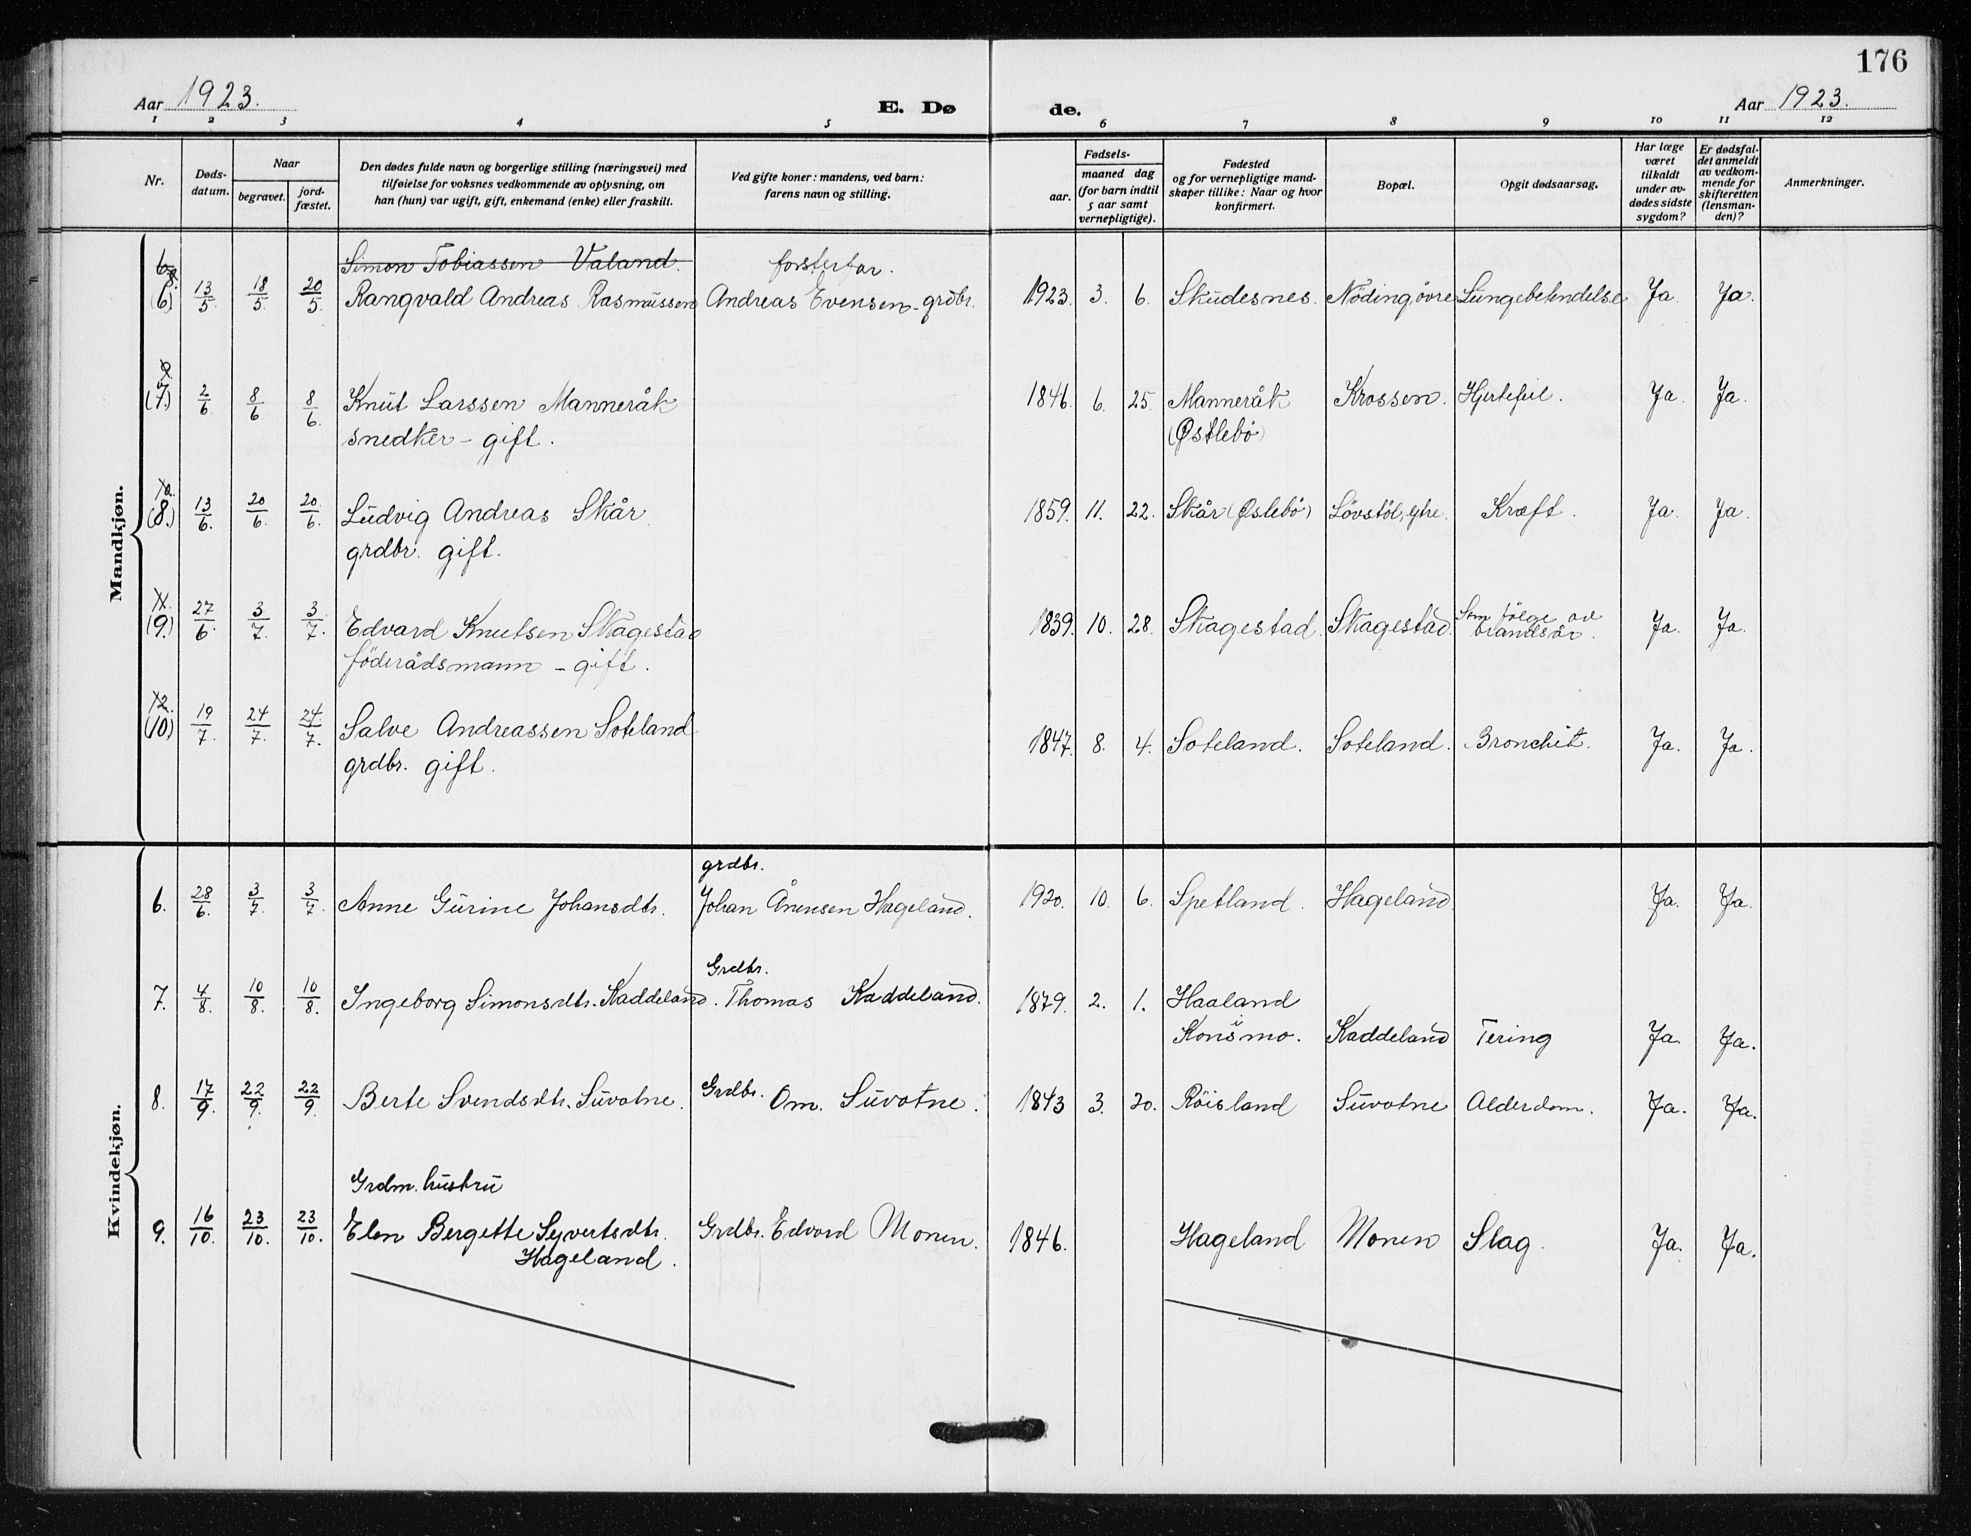 176
Aar 1923.
E. Dø de.
Aar 1923.
1 2 3 4 5 6 7 8 9 10 11 12
Nr.
Døds-
datum.
Naar
begravet.
jord-
fæstet.
Den dødes fulde navn og borgerlige stilling (næringsvei) med
tilføielse for voksnes vedkommende av oplysning, om
han (hun) var ugift, gift, enkemand (enke) eller fraskilt.
Ved gifte koner: mandens, ved barn:
farens navn og stilling.
Fødsels-
aar.
maaned dag
(for barn indtil
5 aar samt
vernepligtige).
Fødested
og for vernepligtige mand-
skaper tillike: Naar og hvor
konfirmert.
Bopæl.
Opgit dødsaarsag.
Har læge
været
tilkaldt
under av-
dødes sidste
sygdom?
Er dødsfal-
det anmeldt
av vedkom-
mende for
skifteretten
(lensman-
den)?
Anmerkninger.
Mandkjøn.
6 Simon Tobiassen Valand. fosterfar.
8. (6) 13/5 18/5 20/5 Rangvald Andreas Rasmussen Andreas Evensen - grdbr. 1923. 3. 6. Skudesnes. Nöding övre Lungebetendelse Ja. Ja.
9. (7.) 2/6 8/6 8/6. Knut Larssen Manneråk 1846. 6. 25. Manneråk Krossen. Hjertefeil. Ja. Ja.
snedker - gift. (Østlebö)
10. (8.) 13/6. 20/6. 20/6. Ludvig Andreas Skår 1859. 11. 22. Skår (Øslebö) Lövstöl, ytre. Kræft. Ja. Ja.
grdbr. gift.
11. (9.) 27/6. 3/7. 3/7. Edvard Knutsen Skagestad 1839. 10. 28. Skagestad. Skagestad. Som fölge av
föderådsmann - gift. brandsår. Ja. Ja.
12. (10) 19/7 24/7. 24/7. Salve Andreassen Soteland 1847. 8. 4. Soteland. Soteland. Bronchit. Ja. Ja.
grdbr. gift.
Kvindekjøn.
grdbr.
6. 28/6. 3/7. 3/7. Anne Gurine Johansdtr. Johan Ånensen Hageland. 1920. 10. 6. Spetland. Hageland. Ja. Ja.
Grdbr.
7. 4/8. 10/8. 10/8. Ingeborg Simonsdtr. Kaddeland. Thomas Kaddeland. 1879. 2. 1. Haaland
i
Konsmo. Kaddeland Tering Ja. Ja.
8. 17/9. 22/9. 22/9. Berte Svendsdtr. Suvatne. Grdbr. Om. Suvatne. 1843 3. 20. Röisland Suvatne Alderdom. Ja. Ja.
Grdm. hustru
9. 16/10. 23/10. 23/10. Elen Bergette Syvertsdtr. Grdbr. Edvard Monen. 1846. Hageland Monen Slag. Ja. Ja.
Hageland.